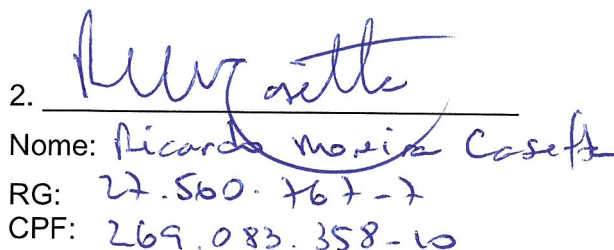 2.
Nome: Ricardo Moreira Casetta
RG: 27.560.767-7
CPF: 269.083.358-10